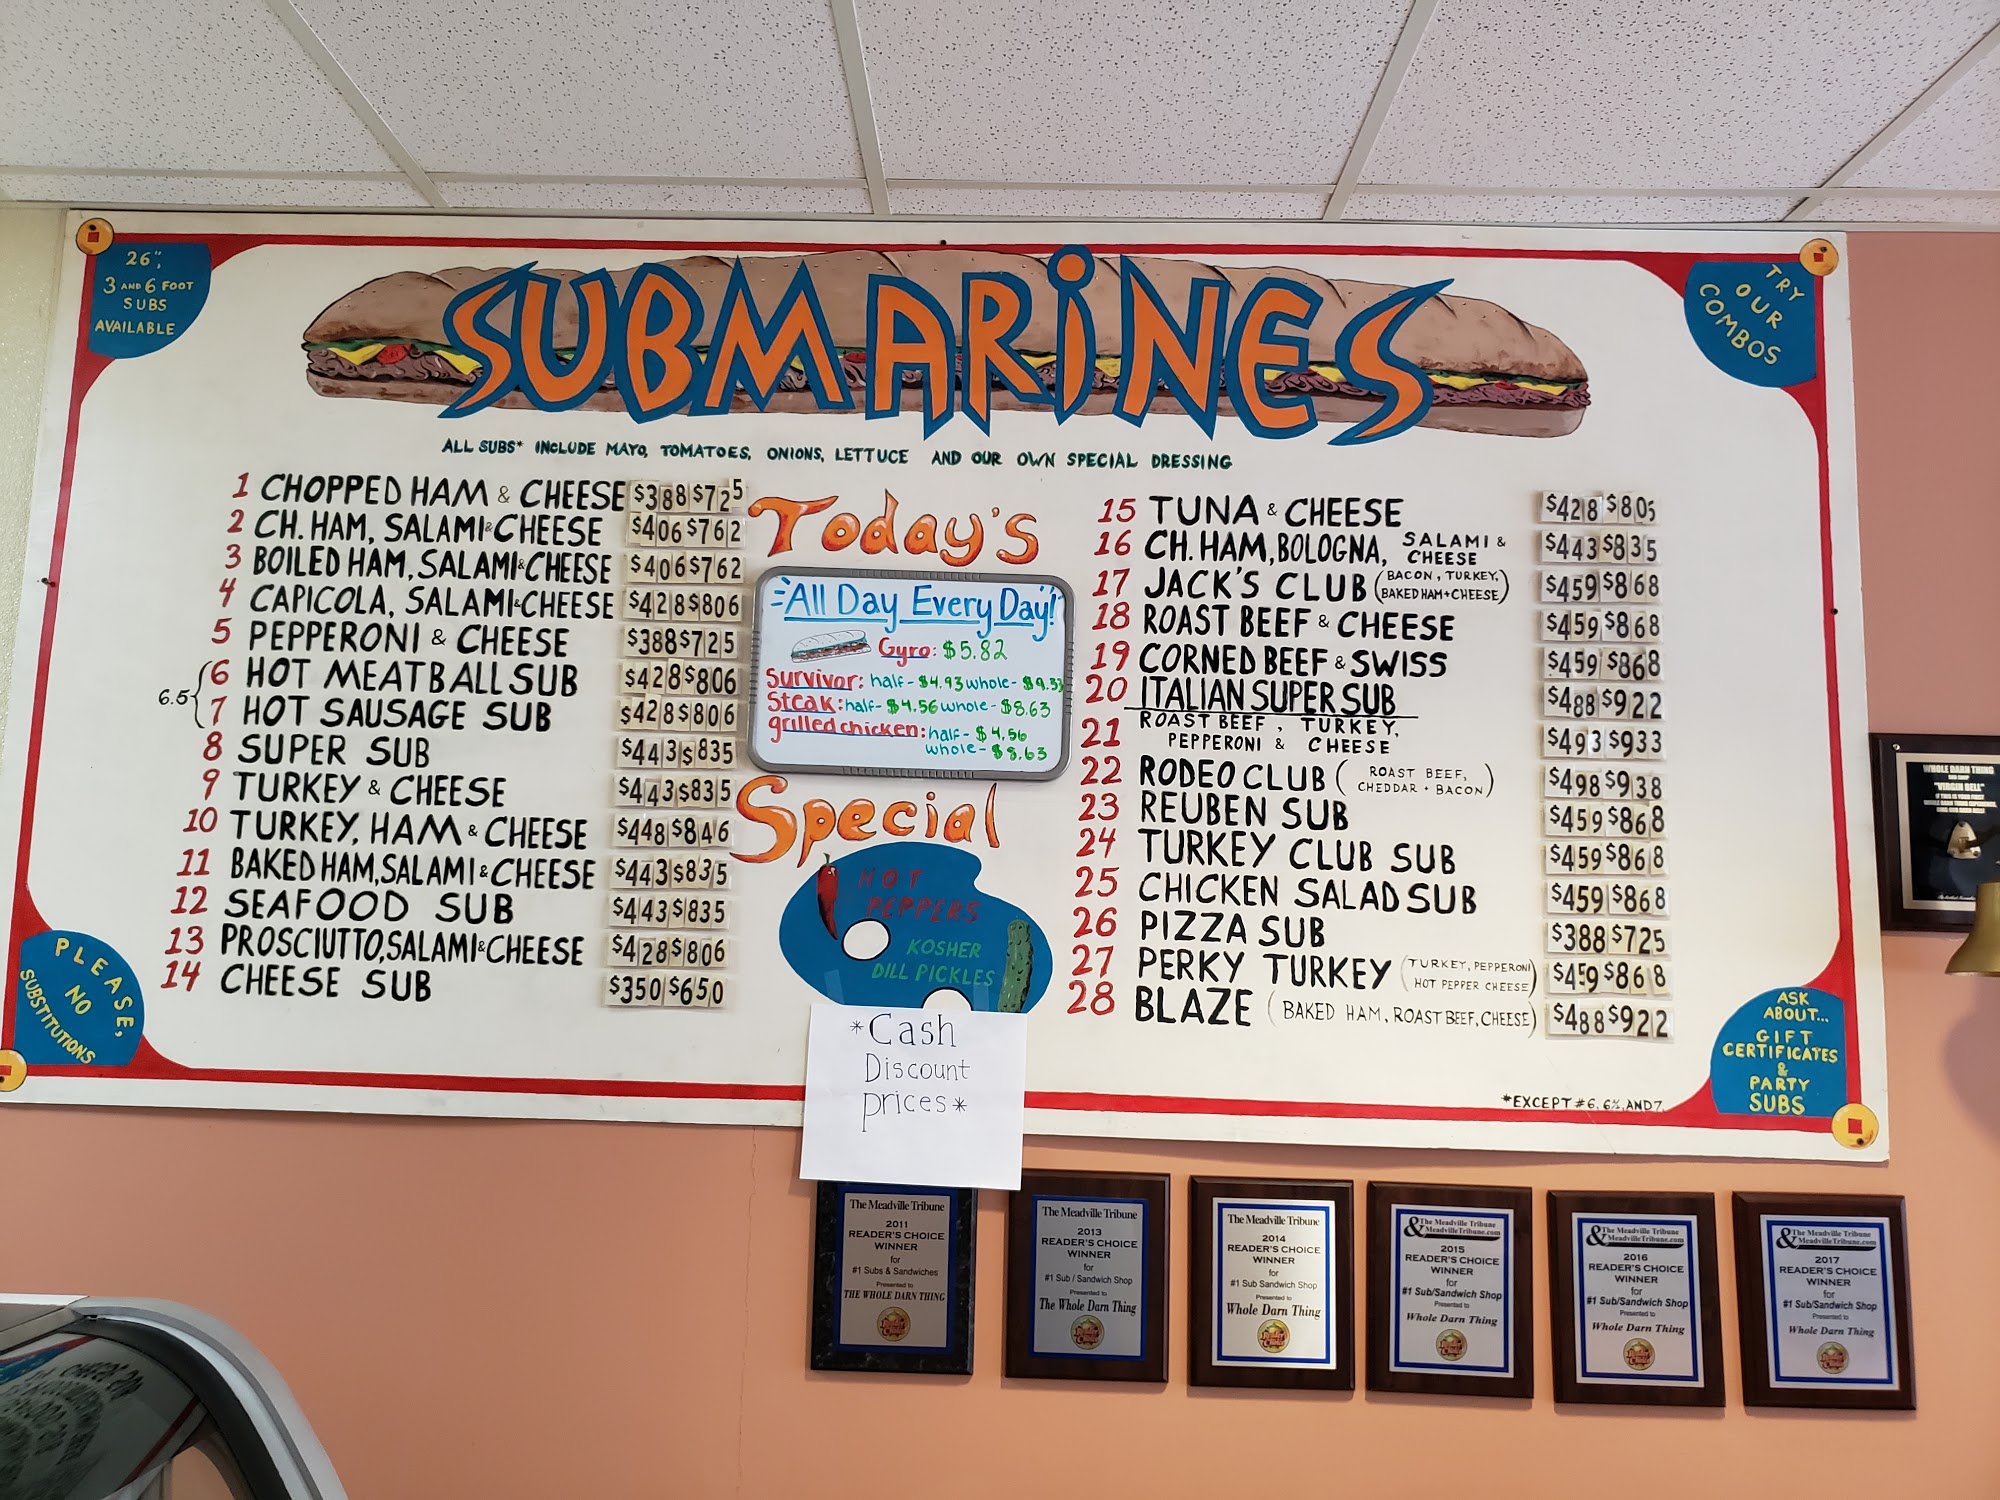 26",
3 AND 6 FOOT
SUBS
AVAILABLE
SUBMARINES
TRY
OUR
COMBOS
ALL SUBS* INCLUDE MAYO, TOMATOES, ONIONS, LETTUCE AND OUR OWN SPECIAL DRESSING
1 CHOPPED HAM & CHEESE $388 $725
2 CH. HAM, SALAMI & CHEESE $406 $762
3 BOILED HAM, SALAMI & CHEESE $406 $762
4 CAPICOLA, SALAMI & CHEESE $428 $806
5 PEPPERONI & CHEESE $388 $725
6 HOT MEATBALL SUB $428 $806
6.5
7 HOT SAUSAGE SUB $428 $806
8 SUPER SUB $443 $835
9 TURKEY & CHEESE $443 $835
10 TURKEY, HAM & CHEESE $448 $846
11 BAKED HAM, SALAMI & CHEESE $443 $835
12 SEAFOOD SUB $443 $835
13 PROSCIUTTO, SALAMI & CHEESE $428 $806
14 CHEESE SUB $350 $650
PLEASE,
NO
SUBSTITUTIONS
Today's
All Day Every Day!
Gyro: $5.82
Survivor: half- $4.93 whole- $9.33
Steak: half- $4.56 whole- $8.63
grilled chicken: half- $4.56
whole- $8.63
Special
HOT
PEPPERS
KOSHER
DILL PICKLES
*Cash
Discount
prices*
15 TUNA & CHEESE $428 $805
16 CH. HAM, BOLOGNA, SALAMI & CHEESE $443 $835
17 JACK'S CLUB (BACON, TURKEY, BAKED HAM + CHEESE) $459 $868
18 ROAST BEEF & CHEESE $459 $868
19 CORNED BEEF & SWISS $459 $868
20 ITALIAN SUPER SUB $488 $922
21 ROAST BEEF, TURKEY, PEPPERONI & CHEESE $493 $933
22 RODEO CLUB (ROAST BEEF, CHEDDAR + BACON) $498 $938
23 REUBEN SUB $459 $868
24 TURKEY CLUB SUB $459 $868
25 CHICKEN SALAD SUB $459 $868
26 PIZZA SUB $388 $725
27 PERKY TURKEY (TURKEY, PEPPERONI HOT PEPPER CHEESE) $459 $868
28 BLAZE (BAKED HAM, ROAST BEEF, CHEESE) $488 $922
*EXCEPT #6, 6½, AND 7.
ASK
ABOUT...
GIFT
CERTIFICATES
&
PARTY
SUBS
WHOLE DARN THING
"VIRGIN BELL"
The Meadville Tribune
2011
READER'S CHOICE
WINNER
for
#1 Subs & Sandwiches
Presented to
THE WHOLE DARN THING
The Meadville Tribune
2013
READER'S CHOICE
WINNER
for
#1 Sub / Sandwich Shop
Presented to
The Whole Darn Thing
The Meadville Tribune
2014
READER'S CHOICE
WINNER
for
#1 Sub Sandwich Shop
Presented to
Whole Darn Thing
The Meadville Tribune
& MeadvilleTribune.com
2015
READER'S CHOICE
WINNER
for
#1 Sub/Sandwich Shop
Presented to
Whole Darn Thing
The Meadville Tribune
& MeadvilleTribune.com
2016
READER'S CHOICE
WINNER
for
#1 Sub/Sandwich Shop
Presented to
Whole Darn Thing
The Meadville Tribune
& MeadvilleTribune.com
2017
READER'S CHOICE
WINNER
for
#1 Sub/Sandwich Shop
Presented to
Whole Darn Thing